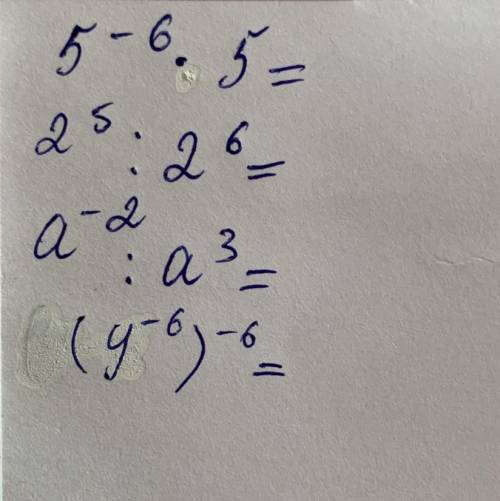 5⁻⁶ · 5 =
2⁵ : 2⁶ =
a⁻² : a³ =
(y⁻⁶)⁻⁶ =